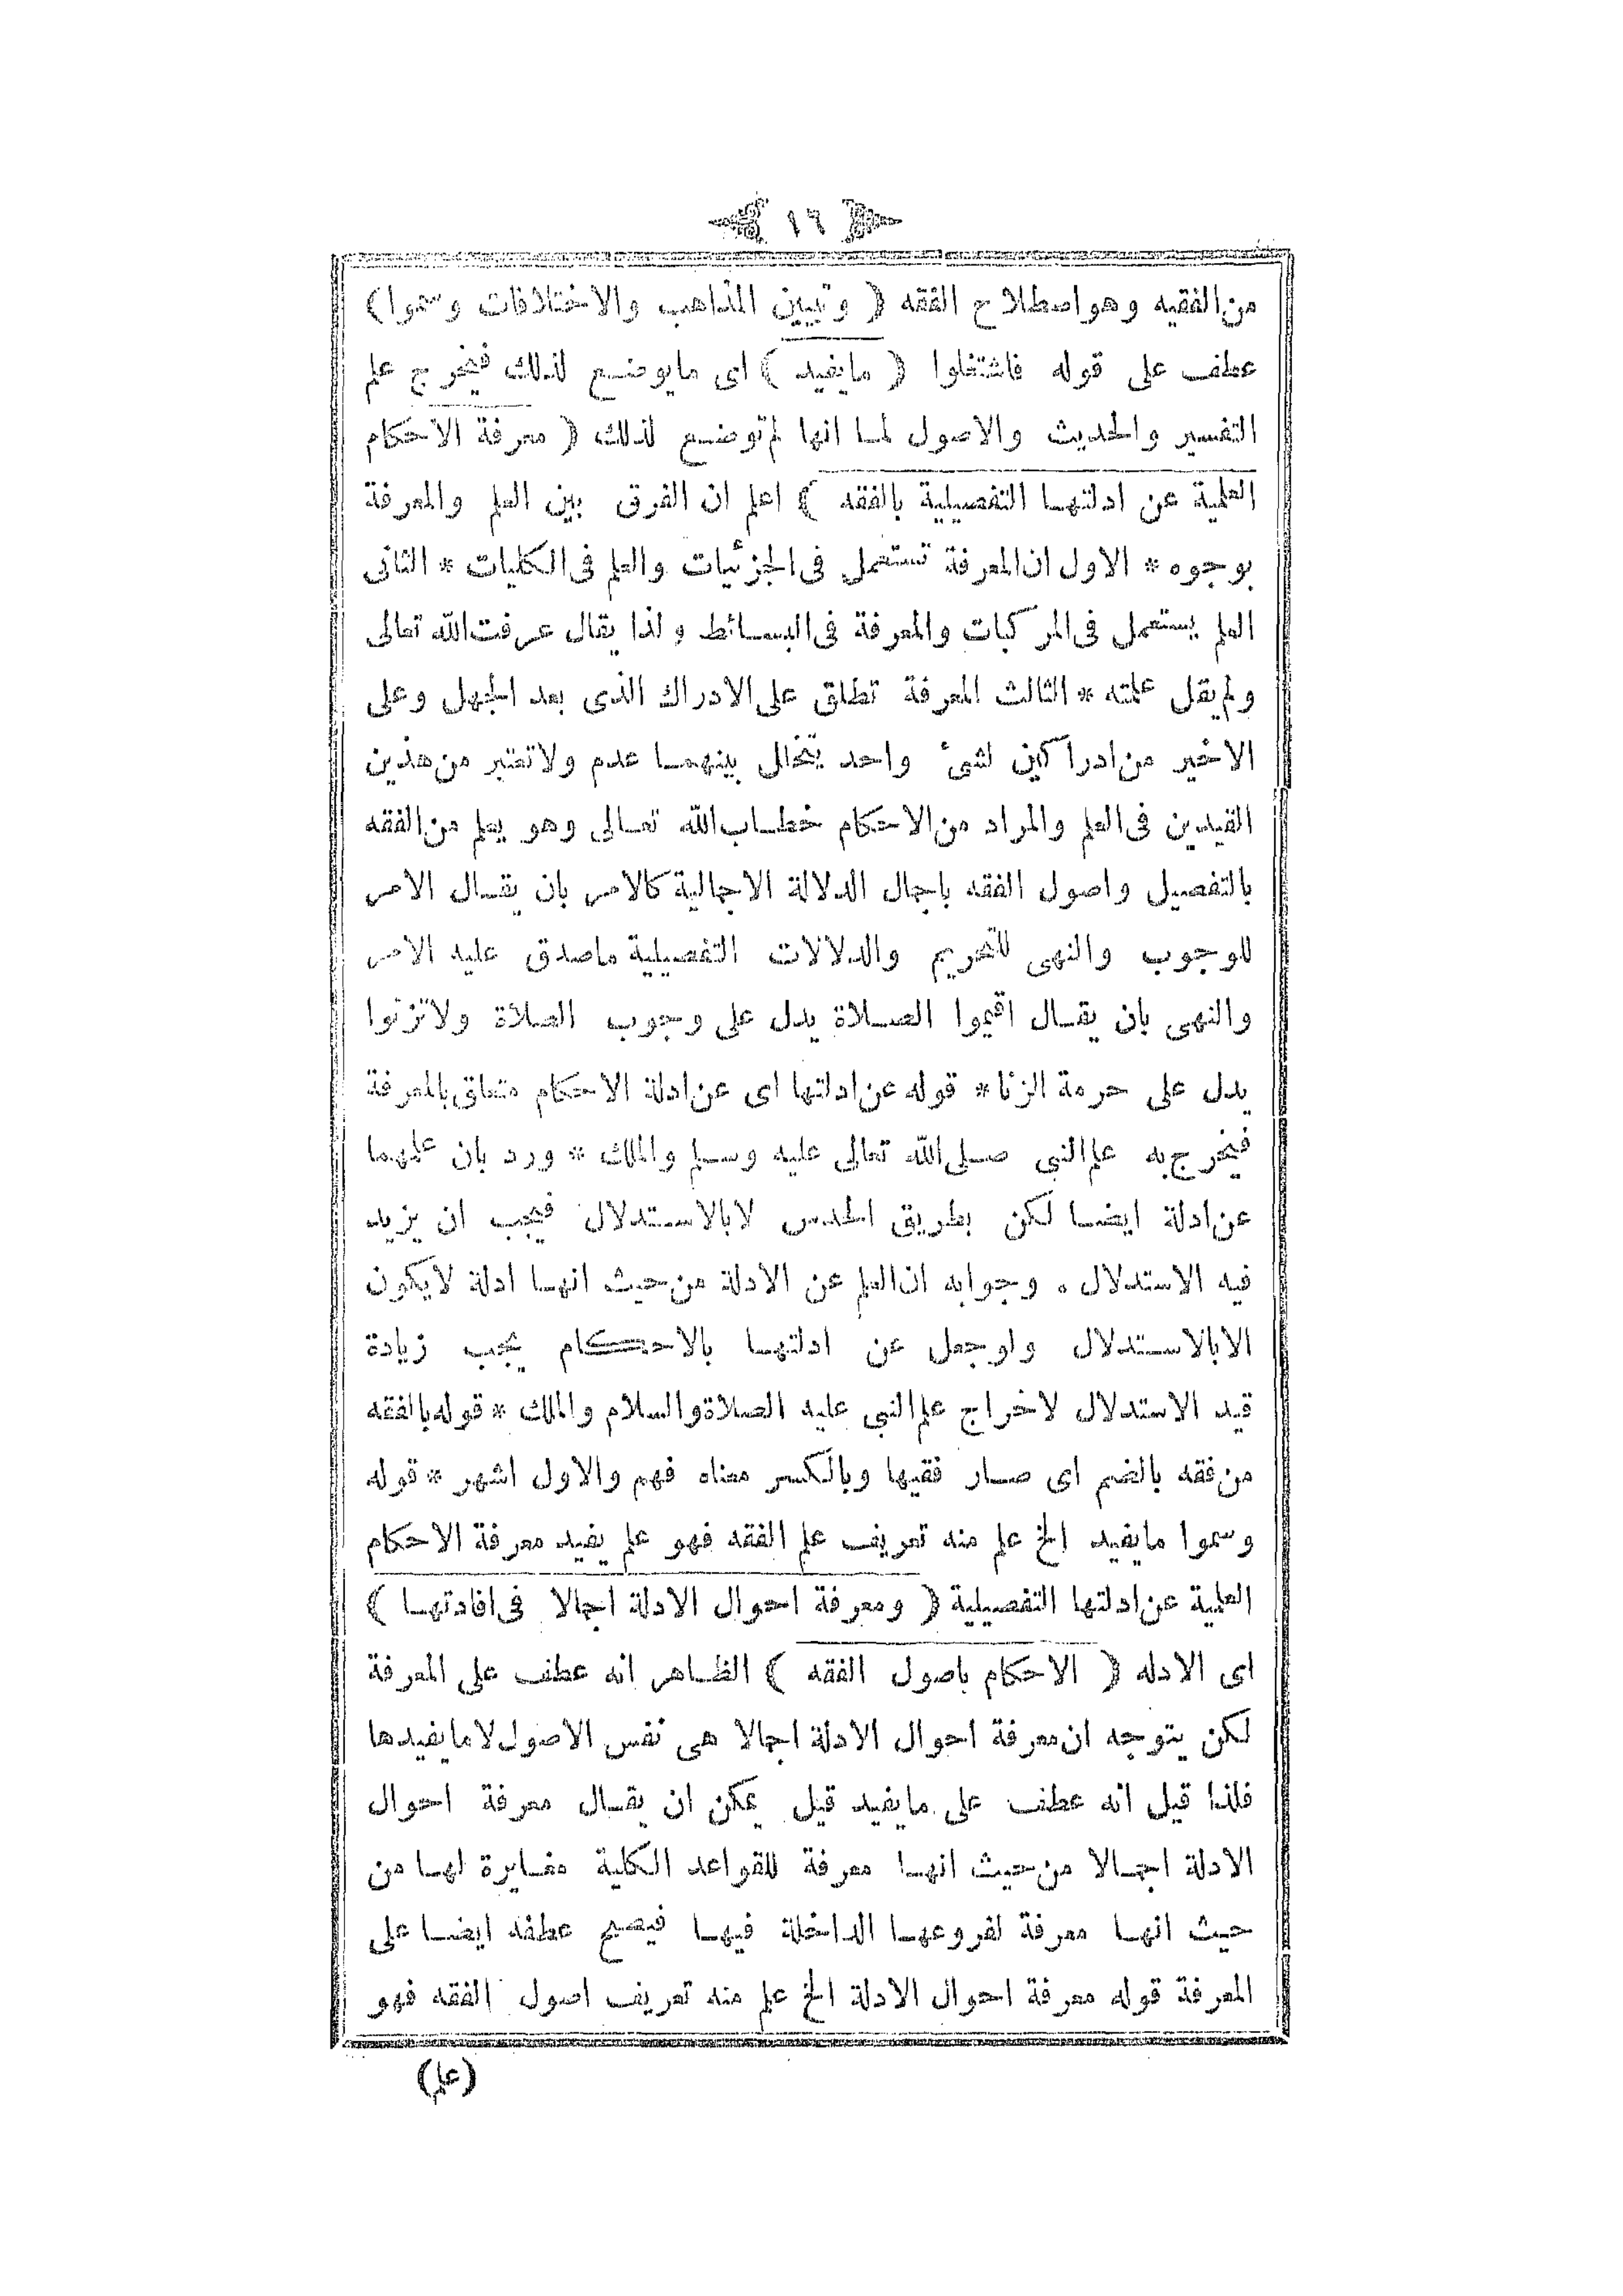 ١٦
من الفقيه وهو اصطلاح الفقه ( وتبيين المذاهب والاختلافات وسموا )
عطف على قوله فاشتغلوا ( مايفيد ) اى مايوضع لذلك فيخرج علم
التفسير والحديث والاصول لما انها لم توضع لذلك ( معرفة الاحكام
العملية عن ادلتها التفصيلية بالفقه ) اعلم ان الفرق بين العلم والمعرفة
بوجوه * الاول ان المعرفة تستعمل فى الجزئيات والعلم فى الكليات * الثانى
العلم يستعمل فى المركبات والمعرفة فى البسائط ولذا يقال عرفت الله تعالى
ولم يقل علمته * الثالث المعرفة تطلق على الادراك الذى بعد الجهل وعلى
الاخير من ادراكين لشئ واحد يتخلل بينهما عدم ولا تعتبر من هذين
القيدين فى العلم والمراد من الاحكام خطاب الله تعالى وهو يعلم من الفقه
بالتفصيل واصول الفقه باجمال الدلالة الاجمالية كالامر بان يقال الامر
للوجوب والنهى للتحريم والدلالات التفصيلية ماصدق عليه الامر
والنهى بان يقال اقيموا الصلاة يدل على وجوب الصلاة ولاتزنوا
يدل على حرمة الزنا * قوله عن ادلتها اى عن ادلة الاحكام متعلق بالمعرفة
فيخرج به علم النبى صلى الله تعالى عليه وسلم والملك * ورد بان علمهما
عن ادلة ايضا لكن بطريق الحدس لا بالاستدلال فيجب ان يزيد
فيه الاستدلال ٠ وجوابه ان العلم عن الادلة من حيث انها ادلة لايكون
الا بالاستدلال ولوجعل عن ادلتها بالاحكام يجب زيادة
قيد الاستدلال لاخراج علم النبى عليه الصلاة والسلام والملك * قوله بالفقه
من فقه بالضم اى صار فقيها وبالكسر معناه فهم والاول اشهر * قوله
وسموا مايفيد الخ علم منه تعريف علم الفقه فهو علم يفيد معرفة الاحكام
العملية عن ادلتها التفصيلية ( ومعرفة احوال الادلة اجمالا فى افادتها )
اى الادله ( الاحكام باصول الفقه ) الظاهر انه عطف على المعرفة
لكن يتوجه ان معرفة احوال الادلة اجمالا هى نفس الاصول لا مايفيدها
فلذا قيل انه عطف على مايفيد قيل يمكن ان يقال معرفة احوال
الادلة اجمالا من حيث انها معرفة للقواعد الكلية مغايرة لها من
حيث انها معرفة لفروعها الداخلة فيها فيصح عطفه ايضا على
المعرفة قوله معرفة احوال الادلة الخ علم منه تعريف اصول الفقه فهو
(علم)